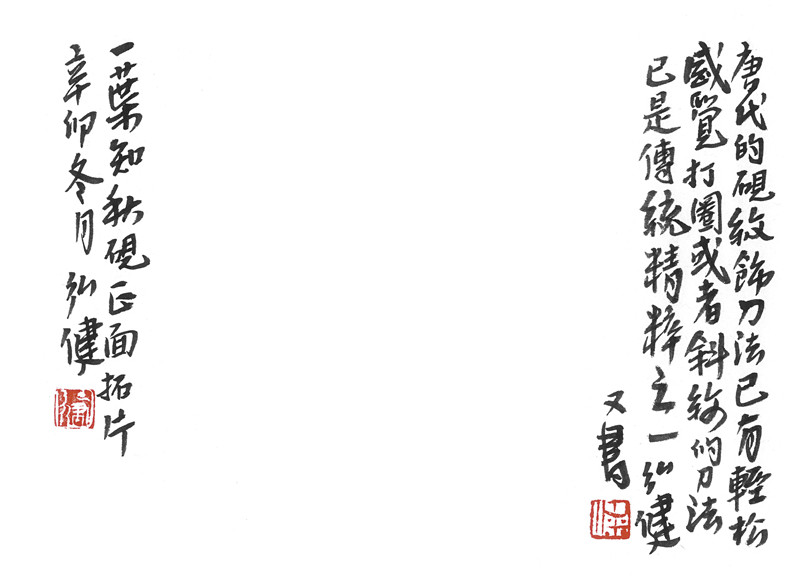 唐代的硯紋飾刀法已有輕松
感覺打圈或者斜紋的刀法
已是傳統精粹之一弘健
又書
一葉知秋硯正面拓片
辛卯冬月弘健